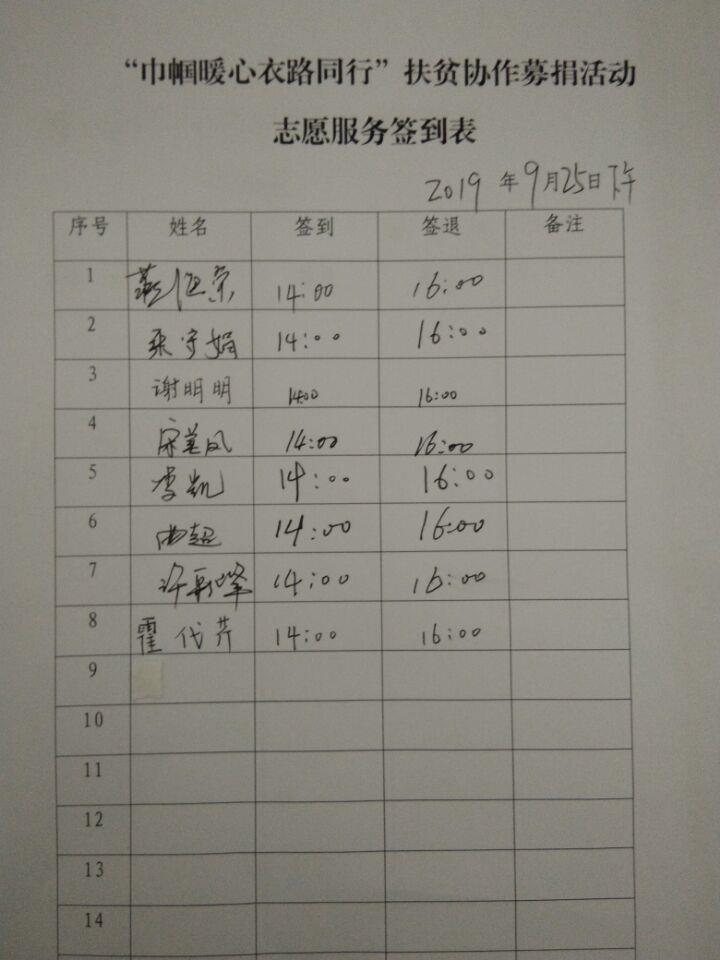 “巾帼暖心衣路同行”扶贫协作募捐活动
志愿服务签到表
2019 年 9月25日下午
序号 姓名 签到 签退 备注
1 14:00 16:00
2 14:00 16:00
3 谢明明 14:00 16:00
4 宋美凤 14:00 16:00
5 李凯 14:00 16:00
6 曲超 14:00 16:00
7 14:00 16:00
8 霍代芹 14:00 16:00
9
10
11
12
13
14